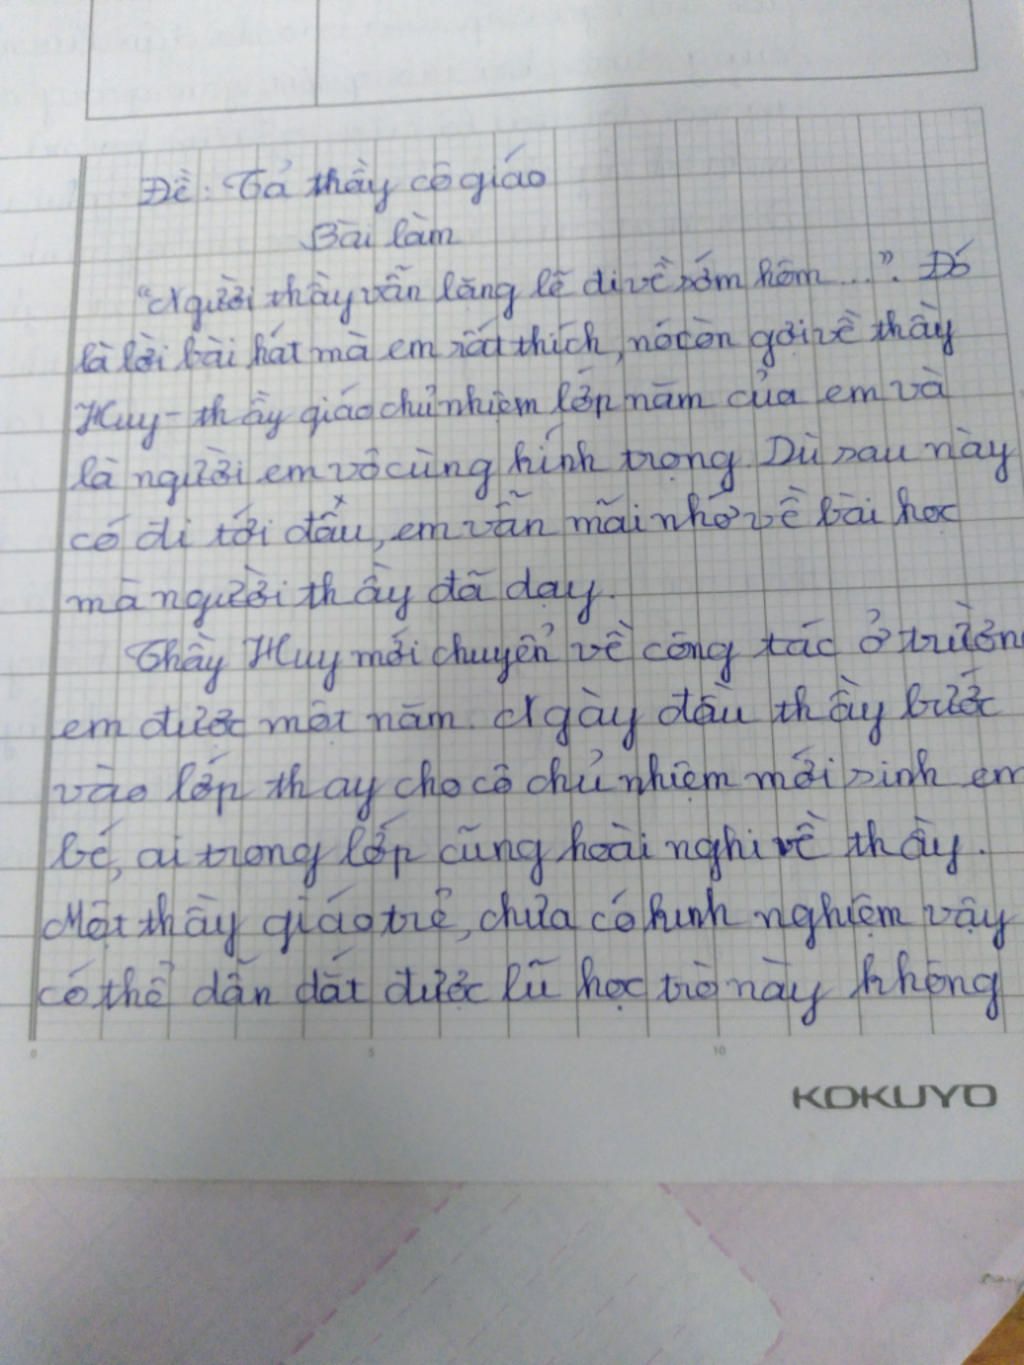 Đề: Tả thầy cô giáo
Bài làm
"Người thầy vẫn lặng lẽ đi về sớm hôm ...". Đó
là lời bài hát mà em rất thích, nó còn gợi về thầy
Huy - thầy giáo chủ nhiệm lớp năm của em và
là người em vô cùng kính trọng. Dù sau này
có đi tới đâu, em vẫn mãi nhớ về bài học
mà người thầy đã dạy.
Thầy Huy mới chuyển về công tác ở trường
em được một năm. Ngày đầu thầy bước
vào lớp thay cho cô chủ nhiệm mới sinh em
bé, ai trong lớp cũng hoài nghi về thầy.
Một thầy giáo trẻ, chưa có kinh nghiệm vậy
có thể dẫn dắt được lũ học trò này không
0 5 10
KOKUYO